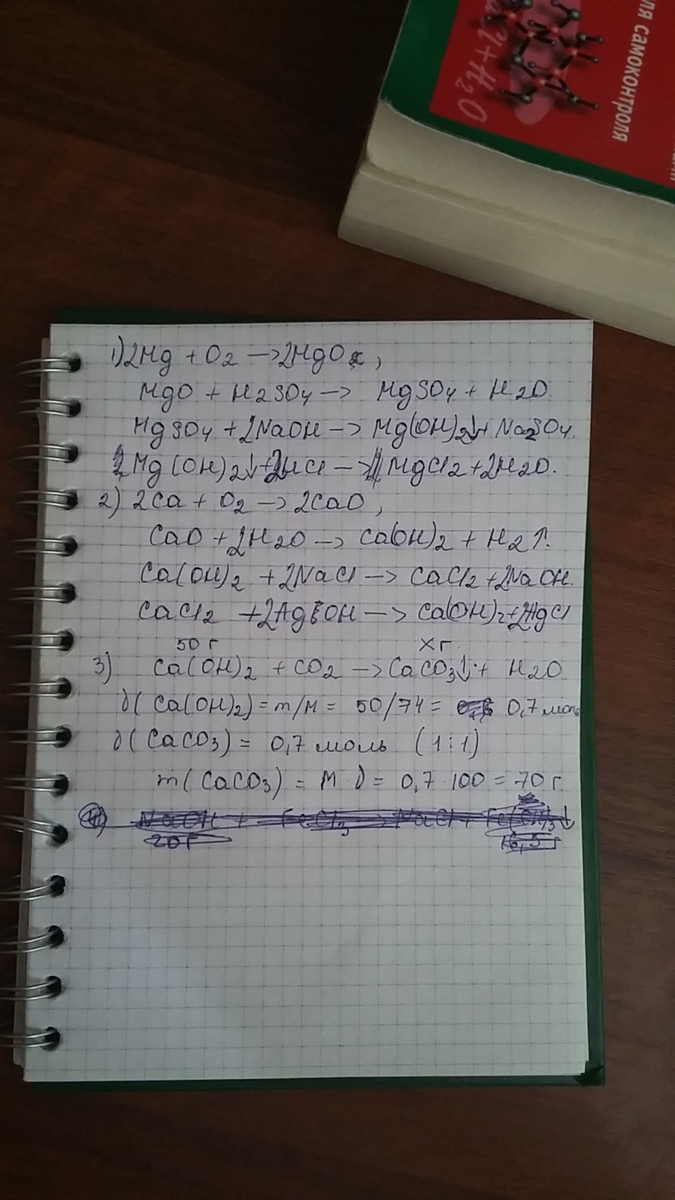 для самоконтроля
Cl + H2O
1) 2Mg + O2 —> 2MgO,
MgO + H2SO4 —> MgSO4 + H2O.
MgSO4 + 2NaOH —> Mg(OH)2↓ + Na2SO4
Mg(OH)2↓ + 2HCl —> MgCl2 + 2H2O.
2) 2Ca + O2 —> 2CaO,
CaO + 2H2O —> Ca(OH)2 + H2↑.
Ca(OH)2 + 2NaCl —> CaCl2 + 2NaOH.
CaCl2 + 2AgOH —> Ca(OH)2 + 2AgCl
50 г xг
3) Ca(OH)2 + CO2 —> CaCO3↓ + H2O
ν(Ca(OH)2) = m/M = 50/74 = 0,7 моль
ν(CaCO3) = 0,7 моль (1:1)
m(CaCO3) = M ν = 0,7 · 100 = 70 г.
4) NaOH + FeCl3 —> NaCl + Fe(OH)3↓
20 г 16,5 г